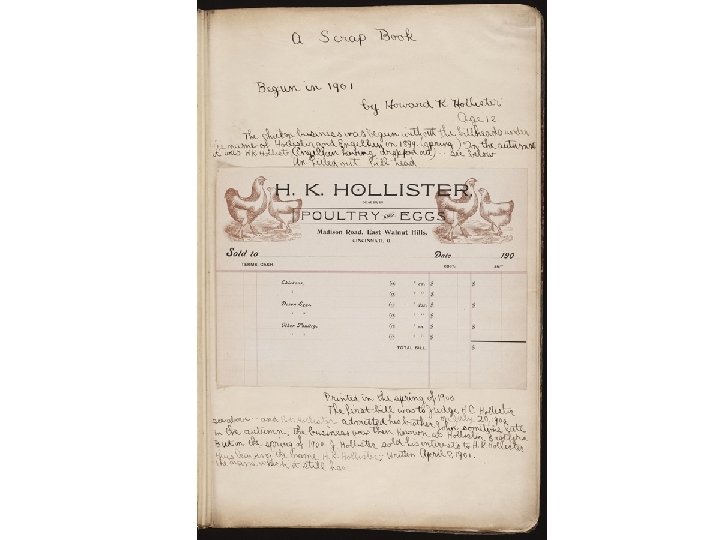 A Scrap Book
Begun in 1901
by Howard K Hollister
Age 12
The chicken business was begun without the billheads under
the name of Hollister and Engelken in 1899 (spring) In the autumn
it was H.K. Hollister (Engelken having dropped out) - see below
An filled out bill head
H. K. HOLLISTER,
DEALER IN
POULTRY AND EGGS
Madison Road, East Walnut Hills,
CINCINNATI, O.
Sold to Date 190
TERMS CASH.
Chickens, @ " ea. $ $
" @ " " $
Dozen Eggs, @ " doz. $ $
" " @ " " $
Other Poultry, @ " ea. $ $
" " @ " " $
TOTAL BILL, $
Printed in the spring of 1900
The first bill was to Judge H.C. Hollister
and H.K. Hollister admitted his brother
in the autumn, the business was then known as Hollister Brothers
But in the spring of 1900 J Hollister sold his interests to H.K Hollister
thus leaving the name H.K. Hollister, Written April 8, 1900.
the name which it still has